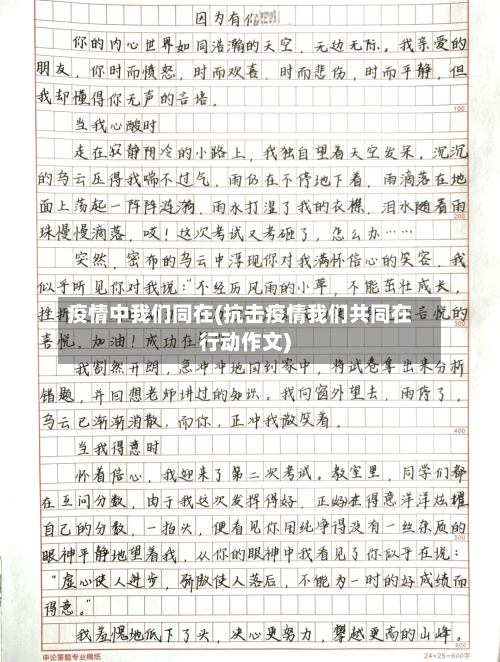 因为有你
你的内心世界如同浩瀚的天空，无边无际。我亲爱的
朋友，你时而愤怒，时而欢喜，时而悲伤，时而平静，但
我却懂得你无声的言语。
100
当我心酸时
走在寂静阴冷的小路上，我独自望着天空发呆。沉沉
的乌云压得我喘不过气，雨仍在不停地下着，雨滴落在地
面上荡起一阵阵涟漪，雨水打湿了我的衣襟，泪水随着雨
200
珠慢慢滴落，哎！这次考试又考砸了，怎么办……
突然，密布的乌云中浮现你对我满怀信心的笑容，我
似乎听见你对我说："不经历风雨的小草，不能茁壮成长，
挫折
喜悦的
300
疫情中我们同在(抗击疫情我们共同在
行动作文)
喜悦。加油！成功在
我豁然开朗，急冲冲地回到家中，将试卷拿出来分析
错题，并回想老师讲过的知识。我向窗外望去，雨停了，
乌云已渐渐消散，而你，正冲我微笑着。
400
当我得意时
怀着信心，我迎来了第二次考试。教室里，同学们都
在互问分数，由于我这次发挥得好，正好在得意洋洋炫耀
自己的分数，一抬头，便看见你用纯净得没有一丝杂质的
500
眼神平静地望着我，从你的眼神中我看见了你似乎在说：
"虚心使人进步，骄傲使人落后，不能为一时的好成绩而
得意。"
我羞愧地低下了头，决心更努力，攀越更高的山峰。
600
申论答题专业稿纸
24×25=600字